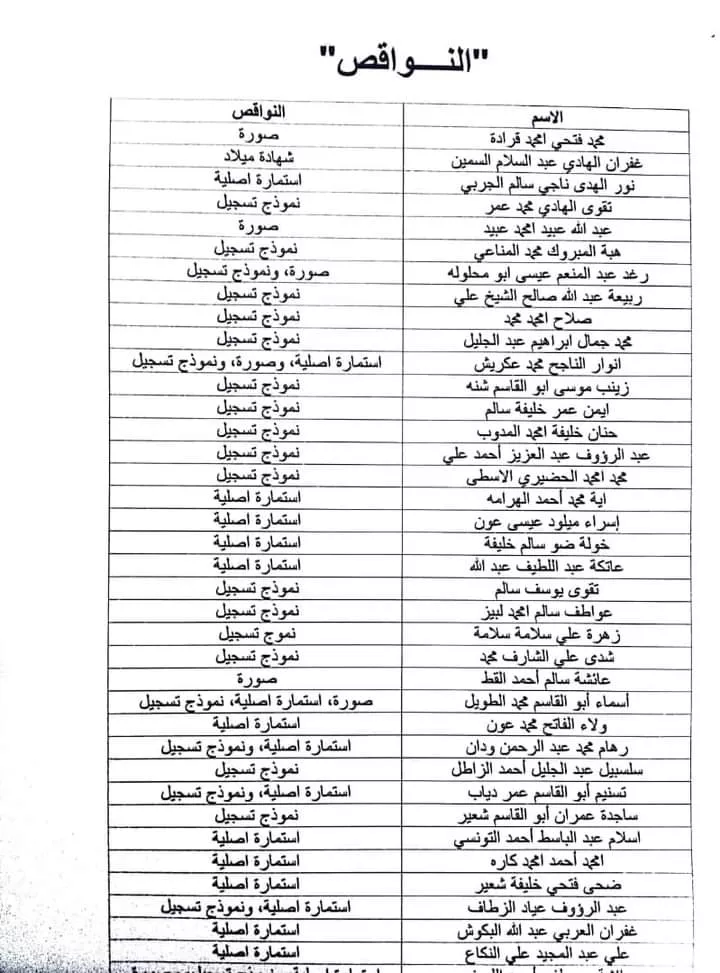 "النـــواقص"
الاسم النواقص
محمد فتحي امحمد قرادة صورة
غفران الهادي عبد السلام السمين شهادة ميلاد
نور الهدى ناجي سالم الجربي استمارة اصلية
تقوى الهادي محمد عمر نموذج تسجيل
عبد الله عبيد امحمد عبيد صورة
هبة المبروك محمد المناعي نموذج تسجيل
رغد عبد المنعم عيسى ابو محلوله صورة، ونموذج تسجيل
ربيعة عبد الله صالح الشيخ علي نموذج تسجيل
صلاح امحمد محمد نموذج تسجيل
محمد جمال ابراهيم عبد الجليل نموذج تسجيل
انوار الناجح محمد عكريش استمارة اصلية، وصورة، ونموذج تسجيل
زينب موسى ابو القاسم شنه نموذج تسجيل
ايمن عمر خليفة سالم نموذج تسجيل
حنان خليفة امحمد المدوب نموذج تسجيل
عبد الرؤوف عبد العزيز أحمد علي نموذج تسجيل
محمد امحمد الحضيري الاسطى نموذج تسجيل
اية محمد أحمد الهرامه استمارة اصلية
إسراء ميلود عيسى عون استمارة اصلية
خولة ضو سالم خليفة استمارة اصلية
عاتكة عبد اللطيف عبد الله استمارة اصلية
تقوى يوسف سالم نموذج تسجيل
عواطف سالم امحمد لبيز نموذج تسجيل
زهرة علي سلامة سلامة نموج تسجيل
شدى علي الشارف محمد نموذج تسجيل
عائشة سالم أحمد القط صورة
أسماء أبو القاسم محمد الطويل صورة، استمارة اصلية، نموذج تسجيل
ولاء الفاتح محمد عون استمارة اصلية
رهام محمد عبد الرحمن ودان استمارة اصلية، ونموذج تسجيل
سلسبيل عبد الجليل أحمد الزاطل نموذج تسجيل
تسنيم أبو القاسم عمر دياب استمارة اصلية، ونموذج تسجيل
ساجدة عمران أبو القاسم شعير نموذج تسجيل
اسلام عبد الباسط أحمد التونسي استمارة اصلية
امحمد أحمد امحمد كاره استمارة اصلية
ضحى فتحي خليفة شعير استمارة اصلية
عبد الرؤوف عياد الزطاف استمارة اصلية، ونموذج تسجيل
غفران العربي عبد الله البكوش استمارة اصلية
علي عبد المجيد علي النكاع استمارة اصلية